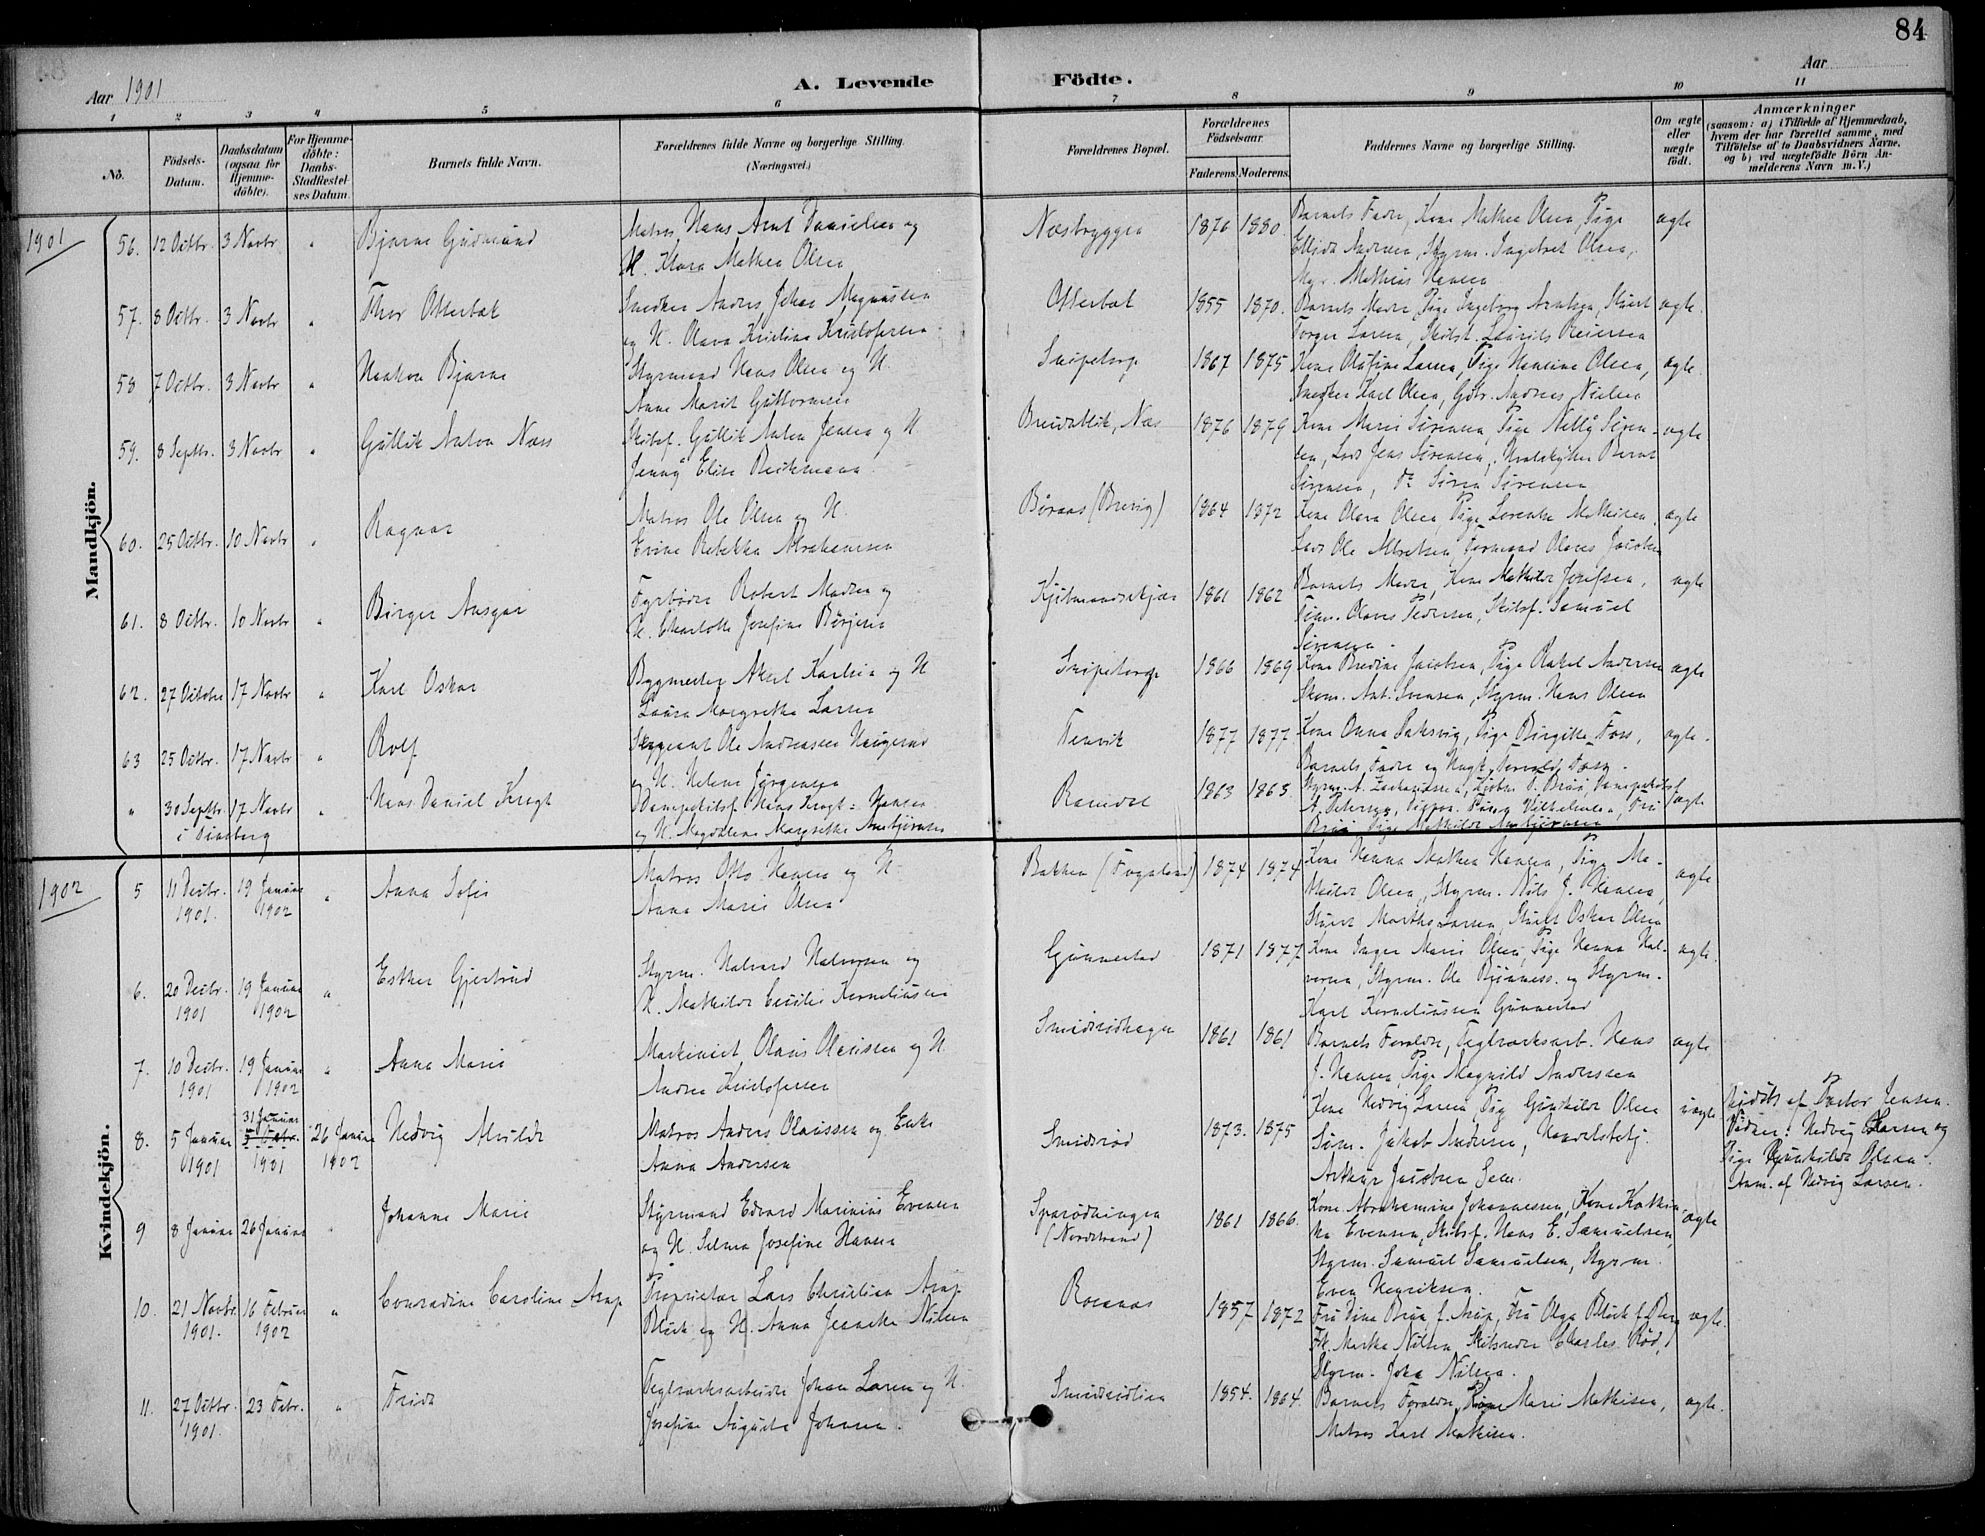 84
Aar 1901
A. Levende Födte.
Aar
1 2 3 4 5 6 7 8 9 10 11
No.
Födsels-Datum.
Daabsdatum (ogsaa for Hjemme-döbte).
For Hjemme-döbte: Daabs-Stadfæstel-ses Datum.
Barnets fulde Navn.
Forældrenes fulde Navne og borgerlige Stilling. (Næringsvei.)
Forældrenes Bopæl.
Forældrenes Födselsaar.
Faderens. Moderens.
Faddernes Navne og borgerlige Stilling.
Om ægte eller uægte födt.
Anmærkninger
(saasom: a) i Tilfælde af Hjemmedaab,
hvem der har forrettet samme, med
Tilföielse af to Daabsvidners Navne,
og b) ved uægtefödte Börn An-
melderens Navn m.V.)
Mandkjön.
1901
56. 12 Octbr. 3 Novbr " Bjarne Gudmund
Matros Hans Arnt Danielsen og
H. Klara Mathea Olsen
Næsbryggen 1876 1880
Barnets Fader, Kone Mathea Olsen, Pige
Ellida Andersen, Styrm. Ingebret Olsen,
Mathias Hansen
ægte
57. 8 Octbr. 3 Novbr " Thor Otterbæk
Snedker Anders Johan Magnussen
og H. Olava Kristine Kristofersen
Otterbæk 1855 1870.
Barnets Moder, Pige Ingeborg Arntsen, Stuert
Torger Larsen, Skibst. Laurits Reiersen
ægte.
58 7 Octbr. 3 Novbr " Haakon Bjarne
Styrmand Hans Olsen og H.
Anne Marit Guttormsen
Snipetorp 1867 1875
Kone Olufine Larsen, Pige Hansine Olsen,
Snedker Karl Olsen, Gbr. Andreas Nielsen
ægte.
59. 8 Septbr. 3 Novbr " Gullik Anton Næss
Skibsf. Gullik Anton Jensen og H.
Jenny Elise Beckmann
Breidablik, Næs 1876 1879
Kone Marie Sörensen, Pige Nelly Sören-
sen, Lods Jens Sörensen, Hvalskytter Bernt
Sörensen, Do Sören Sörensen
ægte
60. 25 Octbr. 10 Novbr " Ragnar
Matros Ole Olsen og H.
Erine Rebekka Abrahamsen
Böraas (Brevig) 1864 1872
Kone Olava Olsen, Pige Lorentse Mathisen,
Lods Ole Albretsen, Formand Olaves Jacobsen
ægte
61. 8 Octbr. 10 Novbr " Birger Ansgar
Fyrböder Robert Madsen og
H. Charlotte Josefine Börjesen
Kjöbmandskjær 1861 1862
Barnets Moder, Kone Mathilde Josefsen,
Töm. Olaves Pedersen, Skibsf. Samuel
Sörensen.
ægte
62. 27 Octobre 17 Novbr " Karl Oskar
Bygmester Aksel Karlsen og H
Laura Margrethe Larsen
Snipetorp 1866 1869
Kone Bredine Jacobsen, Pige Rakel Andersen
Skom. Ant. Svensen, Styrm. Hans Olsen
ægte
63 25 Octbr. 17 Novbr " Rolf
Sergeant Ole Andreassen Haugerud
og H. Helene Jörgensen
Tenvik 1877 1877.
Kone Anna Saksvig, Pige Birgitte Foss,
Barnets Fader og Foss.
ægte.
" 30 Septbr. 17 Novbr " Hans Daniel Krogt
i Tönsberg
Dampskibsf. Hans Krogt-Hansen
og H. Magdalene Margrethe Ambjörnsen
Ramdal 1863 1863
Styrm. A. Zachariassen, Bruu, Dampskibsf.
A. Petersen, Vilhelmsen, Fru
Bruu, Pige Mathilde Ambjörnsen
ægte
Kvindekjön.
1902
5 11 Decbr. 1901. 19 Januar 1902 " Anna Sofie
Matros Otto Hansen og H.
Anna Marie Olsen
Bakken (Fogsland) 1874 1874
Kone Hanna Mathea Hansen, Pige Ma-
thilde Olsen, Styrm. Nils J. Hansen,
Stuert Marthe Larsen, Stuert Oskar Olsen
ægte
6. 20 Decbr. 1901 19 Januar 1902 " Esther Gjertrud
Styrm. Halvard Halvorsen og
H. Mathilde Cecilie Korneliussen
Gunnestad 1871 1877
Kone Inger Marie Olsen, Pige Hanna Hal-
vorsen, Styrm. Ole Björnness. og Styrm.
Karl Korneliussen Gunnestad
ægte.
7. 10 Decbr. 1901 19 Januar 1902 " Anna Marie
Maskinist Olaus Olaussen og H.
Andrea Kristofersen
Smidsrödhagen 1861 1861
Barnets Foreldre, Teglværksarb. Hans
J. Hansen, Pige Magnild Anderssen
ægte
8. 5 Januar 1901 31 Januar 5 Febr. 1901 26 Januar 1902 Hedvig Alvilde
Matros Anders Olaussen og Enke
Anna Andersen
Smidsröd 1873. 1875
Kone Hedvig Larsen, Pige Gunhilde Olsen
Söm. Jakob Andersen, Handelsbetj.
Arthur Jacobsen Sem.
uægte
Hjdöbt af Doctor Jensen.
Vidner: Hedvig Larsen og
Pige Gunhilde Olsen.
Anm. af Hedvig Larsen.
9 8 Januar 26 Januar " Johanne Marie
Styrmand Edvard Marinius Evensen
og H. Selma Josefine Hansen
Sparödningen
(Nordstrand) 1861 1866.
Kone Abrahamine Johannessen, Kone Kathin-
ka Evensen, Skibsf. Hans E. Samuelsen,
Styrm. Samuel Samuelsen, Styrm.
Even Henriksen.
ægte
10. 21 Novbr. 1901. 16 Februar 1902 " Conradine Caroline Arup
Proprietær Lars Christian Arup
Blich og H. Anna Jeanette Nilsen
Rosanes 1857 1872
Fru Dina Bruu, f. Arup, Fru Olga Blich f. Berg
Frk. Martha Nilsen, Skibsreder Charles Röd,
Styrm. John Nilsen.
ægte.
11. 27 Octbr. 1901. 23 Febr. " Frida
Teglværksarbeider Johan Larsen og H.
Josefine Auguste Johnsen
Smidsrödlien 1854. 1864.
Barnets Foreldre, Kone Marie Mathisen,
Matros Karl Mathisen.
ægte.